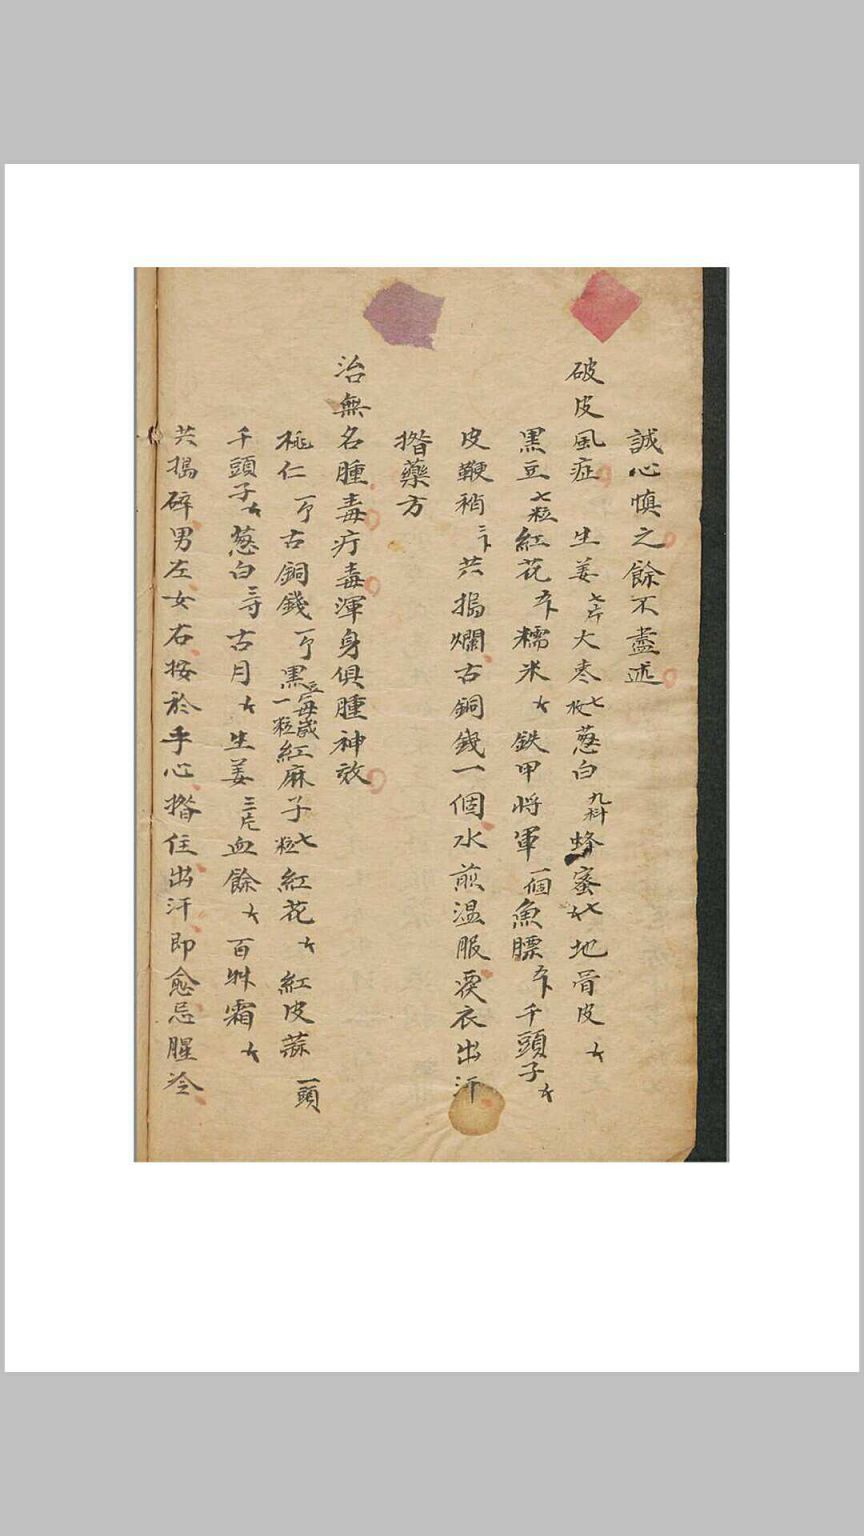 誠心慎之餘不盡述
破皮風症 生姜七片大枣七枚葱白九科蜂蜜地骨皮
黑豆七粒紅花糯米鉄甲将軍一個魚膘千頭子
皮鞭稍共搗爛古銅錢一個水煎温服渡衣出汗
揝藥方
治無名腫毒疔毒渾身俱腫神效
桃仁古銅錢黑豆每歲一粒紅麻子七粒紅花紅皮蒜一頭
千頭子葱白三寸古月生姜三片血餘百艸霜
共搗碎男左女右按於手心揝住出汗即愈忌腥冷